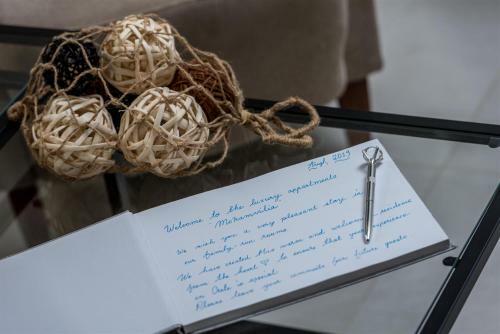 Welcome to the luxury appartments
We wish you a very pleasant stay in
our family run rooms.
We have created this warm and welcoming residence
from the heart ♡ to ensure that your experience
in is special.
Please leave your comments for future guests